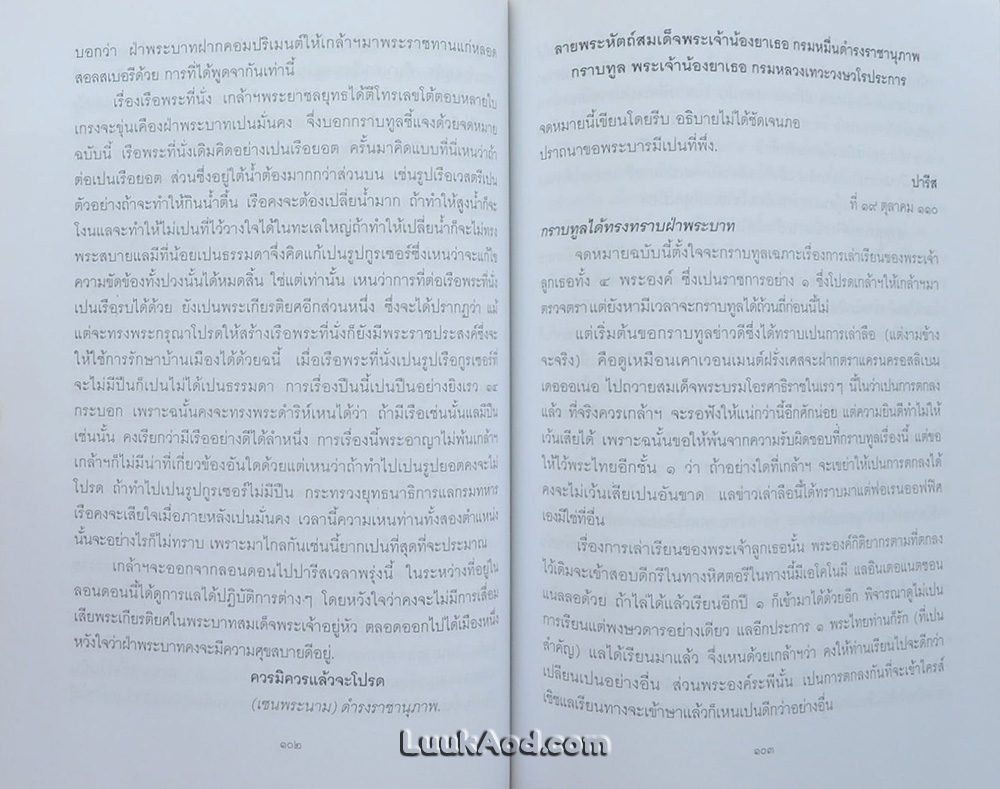 บอกว่า ฝ่าพระบาทฝากคอมปริเมนต์ให้เกล้าฯมาพระราชทานแก่หลอด
สอลสเบอรีด้วย การที่ได้พูดจากันเท่านี้
เรื่องเรือพระที่นั่ง เกล้าฯพระยาชลยุทธได้ตีโทรเลขโต้ตอบหลายใบ
เกรงจะขุ่นเคืองฝ่าพระบาทเปนมั่นคง จึงบอกกราบทูลชี้แจงด้วยจดหมาย
ฉบับนี้ เรือพระที่นั่งเดิมคิดอย่างเปนเรือยอต ครั้นมาคิดแบบที่นี่เหนว่าถ้า
ต่อเปนเรือยอต ส่วนซึ่งอยู่ใต้น้ำต้องมากกว่าส่วนบน เช่นรูปเรือเวสตรีเปน
ตัวอย่างถ้าจะทำให้กินน้ำตื้น เรือคงจะต้องเปลี่ยน้ำมาก ถ้าทำให้สูงน้ำก็จะ
โงนแลจะทำให้ไม่เปนที่ไว้วางใจได้ในทะเลใหญ่ถ้าทำให้เปลี่ยน้ำก็จะไม่ทรง
พระสบายแลมีที่น้อยเปนธรรมดาจึงคิดแก้เปนรูปกูรเซอร์ซึ่งเหนว่าจะแก้ไข
ความขัดข้องทั้งปวงนั้นได้หมดสิ้น ใช่แต่เท่านั้น เหนว่าการที่ต่อเรือพระที่นั่ง
เปนเรือรบได้ด้วย ยังเปนพระเกียรติยศอีกส่วนหนึ่ง ซึ่งจะได้ปรากฏว่า แม้
แต่จะทรงพระกรุณาโปรดให้สร้างเรือพระที่นั่งก็ยังมีพระราชประสงค์ซึ่งจะ
ให้ใช้การรักษาบ้านเมืองได้ด้วยฉนี้ เมื่อเรือพระที่นั่งเปนรูปเรือกูรเซอร์ที่
จะไม่มีปืนก็เปนไม่ได้เปนธรรมดา การเรื่องปืนนี้เปนปืนอย่างยิงเรว ๑๔
กระบอก เพราะฉนั้นคงจะทรงพระดำริห์เหนได้ว่า ถ้ามีเรือเช่นนั้นแลมีปืน
เช่นนั้น คงเรียกว่ามีเรืออย่างดีได้ลำหนึ่ง การเรื่องนี้พระอาญาไม่พ้นเกล้าฯ
เกล้าฯก็ไม่มีน่าที่เกี่ยวข้องอันใดด้วยแต่เหนว่าถ้าทำไปเปนรูปยอตคงจะไม่
โปรด ถ้าทำไปเปนรูปกูรเซอร์ไม่มีปืน กระทรวงยุทธนาธิการแลกรมทหาร
เรือคงจะเสียใจเมื่อภายหลังเปนมั่นคง เวลานี้ความเหนท่านทั้งสองตำแหน่ง
นั้นจะอย่างไรก็ไม่ทราบ เพราะมาไกลกันเช่นนี้ยากเปนที่สุดที่จะประมาณ
เกล้าฯจะออกจากลอนดอนไปปารีสเวลาพรุ่งนี้ ในระหว่างที่อยู่ใน
ลอนดอนนี้ได้ดูการแลได้ปฏิบัติการต่างๆ โดยหวังใจว่าคงจะไม่มีการเสื่อม
เสียพระเกียรติยศในพระบาทสมเด็จพระเจ้าอยู่หัว ตลอดออกไปได้เมืองหนึ่ง
หวังใจว่าฝ่าพระบาทคงจะมีความศุขสบายดีอยู่.
ควรมิควรแล้วจะโปรด
(เซนพระนาม) ดำรงราชานุภาพ.
๑๐๒
ลายพระหัตถ์สมเด็จพระเจ้าน้องยาเธอ กรมหมื่นดำรงราชานุภาพ
กราบทูล พระเจ้าน้องยาเธอ กรมหลวงเทวะวงษวโรประการ
จดหมายนี้เขียนโดยรีบ อธิบายไม่ได้ชัดเจนภอ
ปราถนาขอพระบารมีเปนที่พึ่ง.
ปารีส
ที่ ๑๙ ตุลาคม ๑๑๐
กราบทูลได้ทรงทราบฝ่าพระบาท
จดหมายฉบับนี้ตั้งใจจะกราบทูลเฉภาะเรื่องการเล่าเรียนของพระเจ้า
ลูกเธอทั้ง ๔ พระองค์ ซึ่งเปนราชการอย่าง ๑ ซึ่งโปรดเกล้าฯให้เกล้าฯมา
ตรวจตรา แต่ยังหามีเวลาจะกราบทูลได้ถ้วนถี่ก่อนนี้ไม่
แต่เริ่มต้นขอกราบทูลข่าวดีซึ่งได้ทราบเปนการเล่าลือ (แต่งามข้าง
จะจริง) คือดูเหมือนเคาเวอนเมนต์ฝรั่งเศสจะฝากตราแครนครอสลิเยน
เดอออเนอ ไปถวายสมเด็จพระบรมโอรสาธิราชในเรวๆ นี้ในว่าเปนการตกลง
แล้ว ที่จริงควรเกล้าฯ จะรอฟังให้แน่กว่านี้อีกศักน่อย แต่ความยินดีทำไม่ให้
เว้นเสียได้ เพราะฉนั้นขอให้พ้นจากความรับผิดชอบที่กราบทูลเรื่องนี้ แต่ขอ
ให้ไว้พระไทยอีกชั้น ๑ ว่า ถ้าอย่างใดที่เกล้าฯ จะเขย่าให้เปนการตกลงได้
คงจะไม่เว้นเสียเปนอันขาด แลข่าวเล่าลือนี้ได้ทราบมาแต่ฟอเรนออฟฟิศ
เองมิใช่ที่อื่น
เรื่องการเล่าเรียนของพระเจ้าลูกเธอนั้น พระองค์กิติยากรตามที่ตกลง
ไว้เดิมจะเข้าสอบดีกรีในทางหิศตอรีในทางนี้มีเอโคโนมี แลอินเตอแนตชอน
แนลลอด้วย ถ้าไล่ได้แล้วเรียนอีกปี ๑ ก็เข้ามาได้ด้วยอีก พิจารณาดูไม่เปน
การเรียนแต่พงษวดารอย่างเดียว แลอีกประการ ๑ พระไทยท่านก็รัก (ที่เปน
สำคัญ) แลได้เรียนมาแล้ว จึงเหนด้วยเกล้าฯว่า คงให้ท่านเรียนไปจะดีกว่า
เปลียนเปนอย่างอื่น ส่วนพระองค์ระพีนั้น เปนการตกลงกันที่จะเข้าไครส์
เชิชแลเรียนทางจะเข้าษาแล้วก็เหนเปนดีกว่าอย่างอื่น
๑๐๓
LuukAod.com